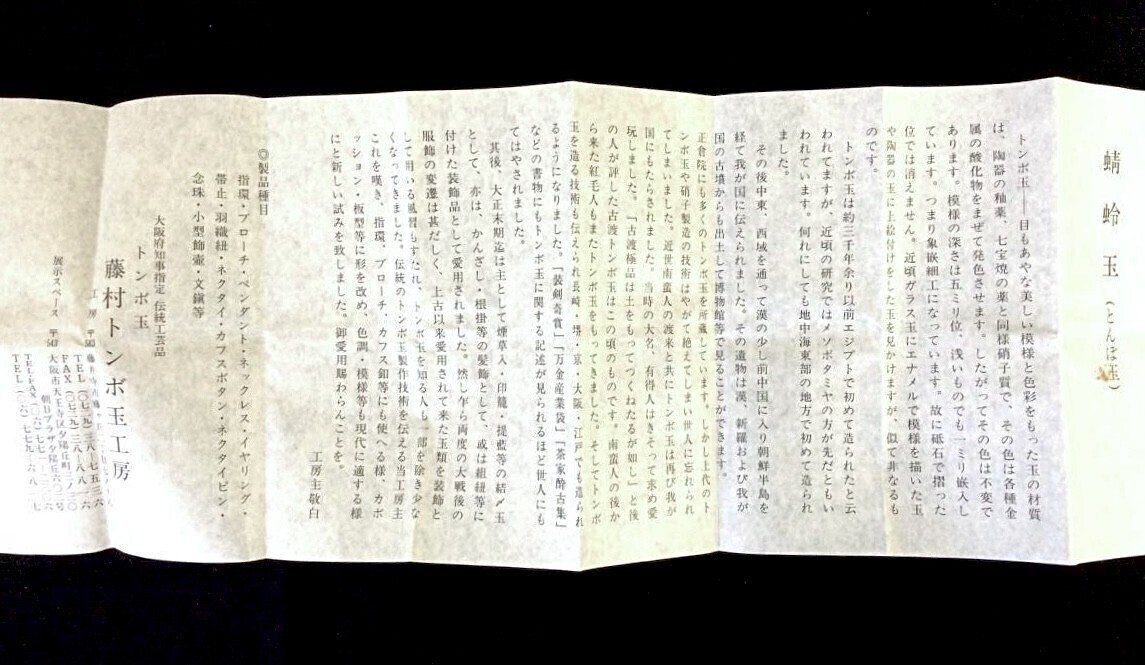 蜻蛉玉(とんぼ玉)
トンボ玉――目もあやな美しい模様と色彩をもった玉の材質
は、陶器の釉薬、七宝焼の薬と同様硝子質で、その色は各種金
属の酸化物をまぜて発色させます。したがってその色は不変で
あります。模様の深さは五ミリ位、浅いものでも一ミリ嵌入し
ています。つまり象嵌細工になっています。故に砥石で摺った
位では消えません。近頃ガラス玉にエナメルで模様を描いた玉
や陶器の玉に上絵付けをした玉を見かけますが、似て非なるも
のです。
トンボ玉は約三千年余り以前エジプトで初めて造られたと云
われてますが、近頃の研究ではメソポタミヤの方が先だともい
われています。何れにしても地中海東部の地方で初めて造られ
ました。
その後中東、西域を通って漢の少し前中国に入り朝鮮半島を
経て我が国に伝えられました。その遺物は漢、新羅および我が
国の古墳からも出土して博物館等で見ることができます。
正倉院にも多くのトンボ玉を所蔵しています。しかし上代のト
ンボ玉や硝子製造の技術はやがて絶えてしまい世人に忘れられ
てしまいました。近世南蛮人の渡来と共にトンボ玉は再び我が
国にもたらされました。当時の大名、有得人はきそって求め愛
玩しました。「古渡極品は土をもってつくねたるが如し」と後
の人が評した古渡トンボ玉はこの頃のものです。南蛮人の後か
ら来た紅毛人もまたトンボ玉をもってきました。そしてトンボ
玉を造る技術も伝えられ長崎・堺・京・大阪・江戸でも造られ
るようになりました。「装剣奇賞」「万金産業袋」「茶家酔古集」
などの書物にもトンボ玉に関する記述が見られるほど世人にも
てはやされました。
其後、大正末期迄は主として煙草入・印籠・提籃等の結〆玉
として、亦は、かんざし・根掛等の髪飾として、或は組紐等に
付けた装飾品として愛用されました。然し乍ら両度の大戦後の
服飾の変遷は甚だしく、上古以来愛用されて来た玉類を装飾と
して用いる風習もすたれ、トンボ玉を知る人も一部を除き少な
くなってきました。伝統のトンボ玉製作技術を伝える当工房主
これを嘆き、指環、ブローチ、カフス釦等にも使へる様、カボ
ッション・板型等に形を改め、色調・模様等も現代に適する様
にと新しい試みを致しました。御愛用賜わらんことを。
工房主敬白
◎製品種目
指環・ブローチ・ペンダント・ネックレス・イヤリング・
帯止・羽織紐・ネクタイ・カフスボタン・ネクタイピン・
念珠・小型飾壷・文鎮等
大阪府知事指定 伝統工芸品
トンボ玉
藤村トンボ玉工房
工房 〒583
TEL
FAX
展示スペース 〒543 大阪市天王寺区夕陽丘町
朝日プラザ夕陽丘
TEL・FAX
TEL